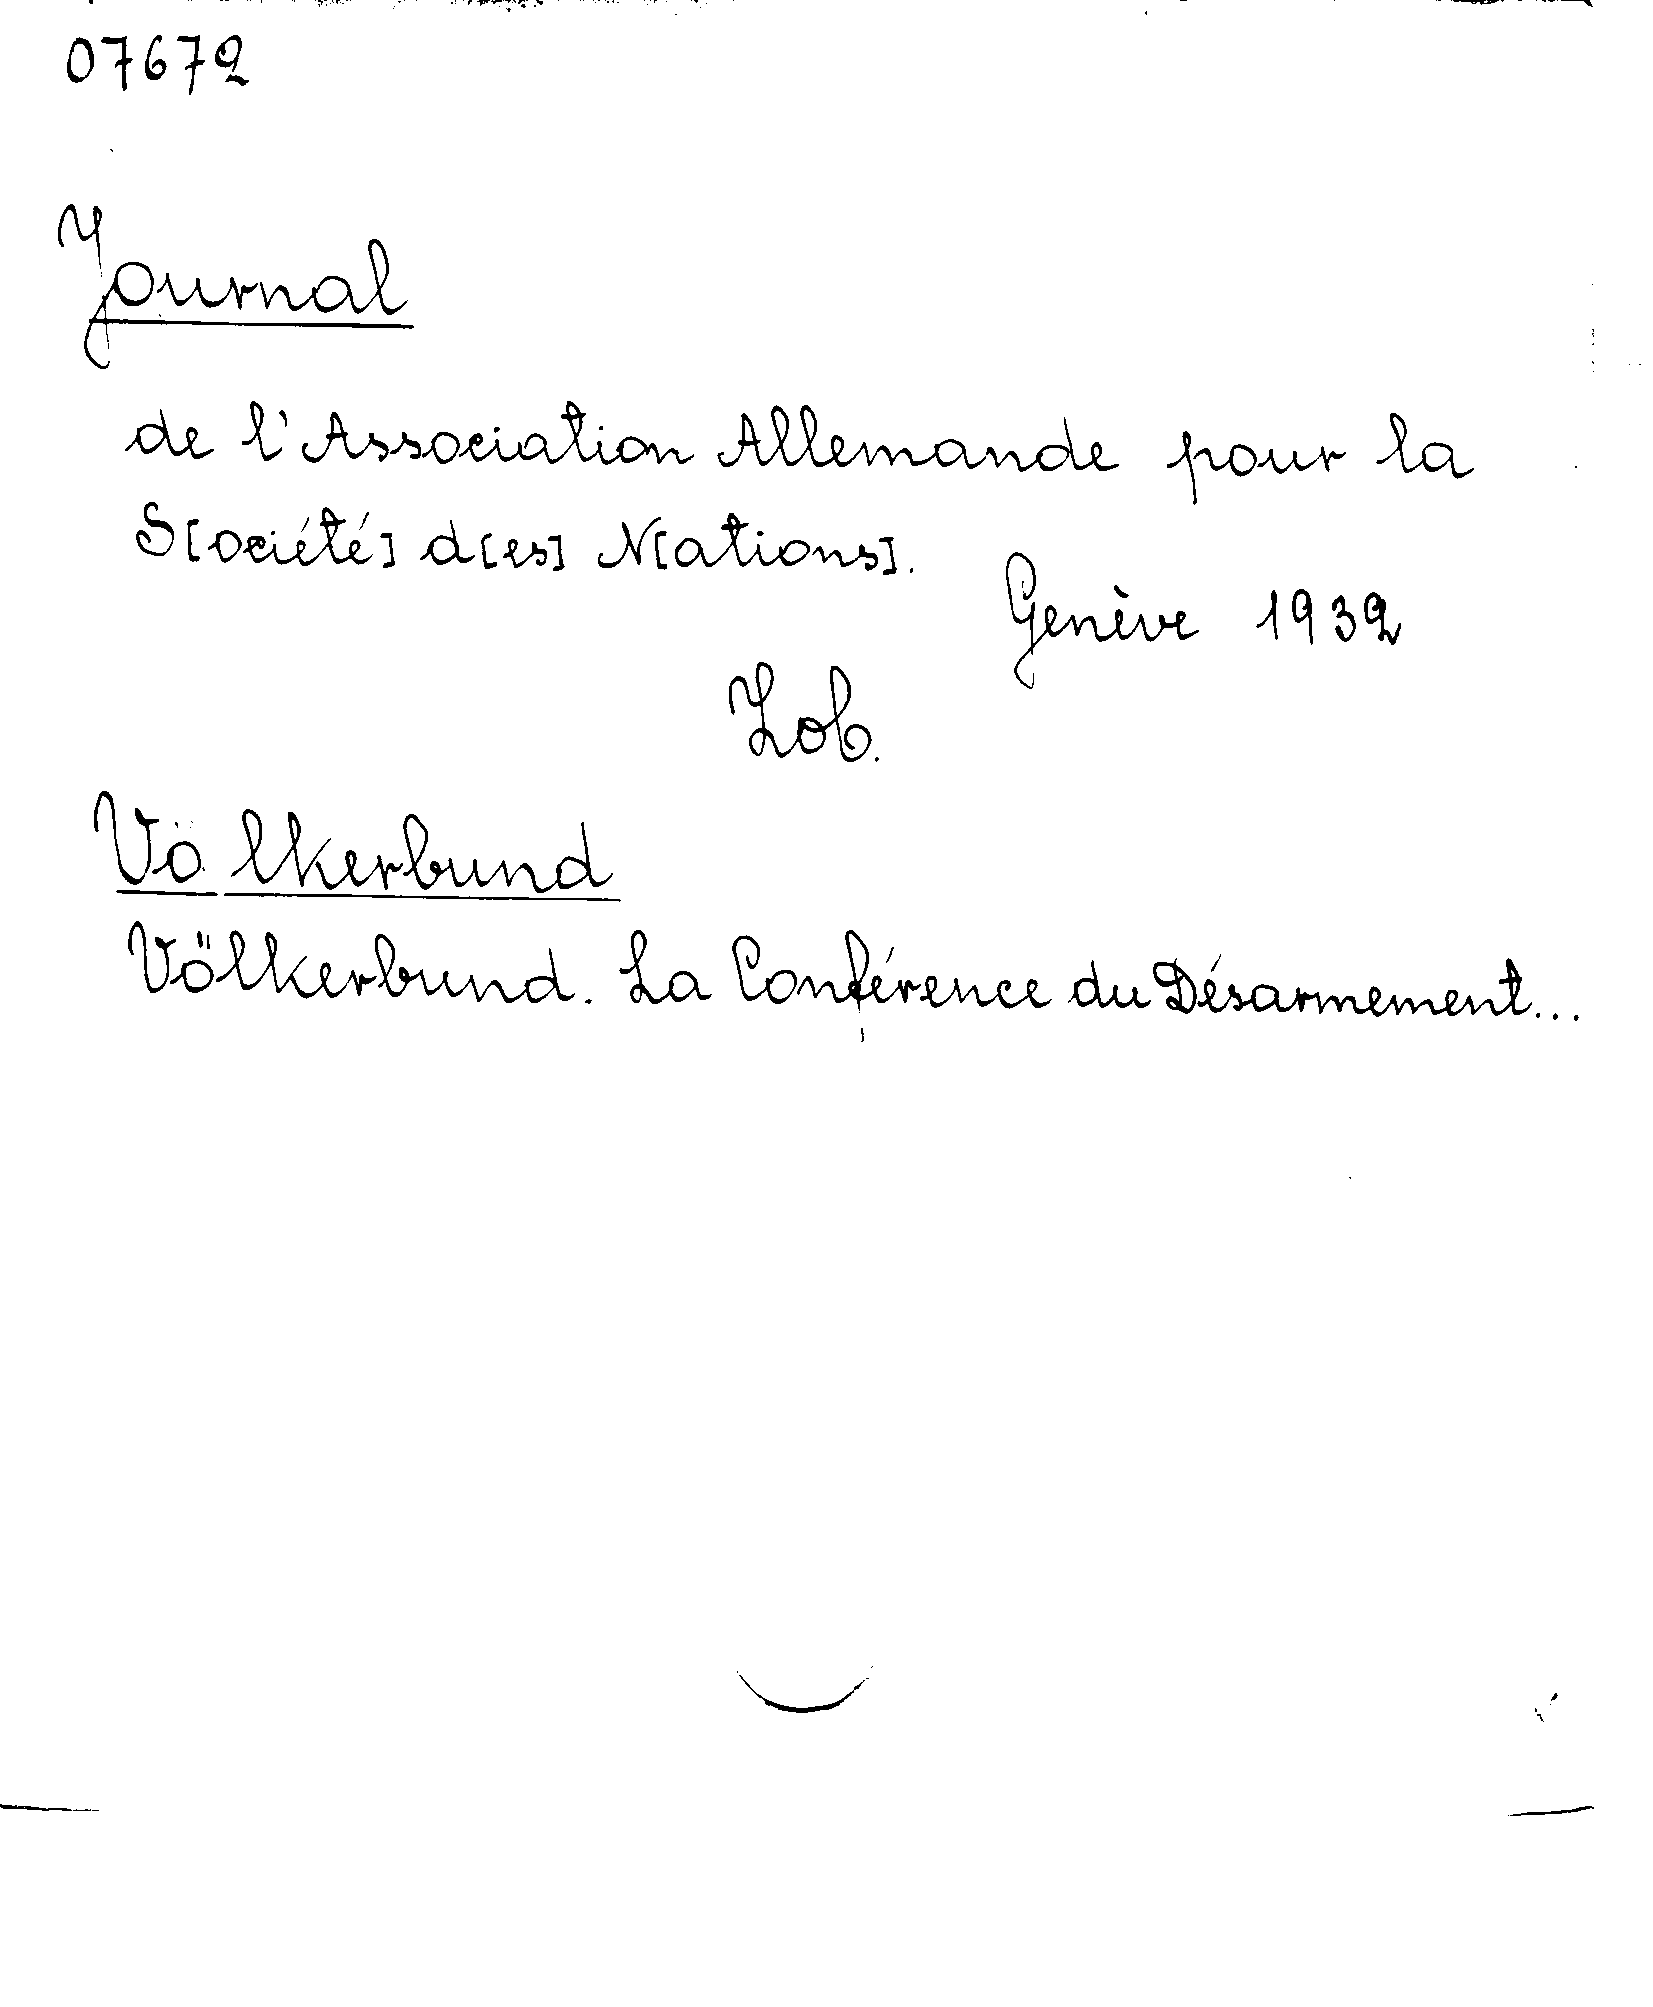 07672
Journal
de l'Association Allemande pour la
S[ociété] d[es] N[ations].
Genève 1932
Zob.
Völkerbund
Völkerbund. La Conférence du Désarmement...